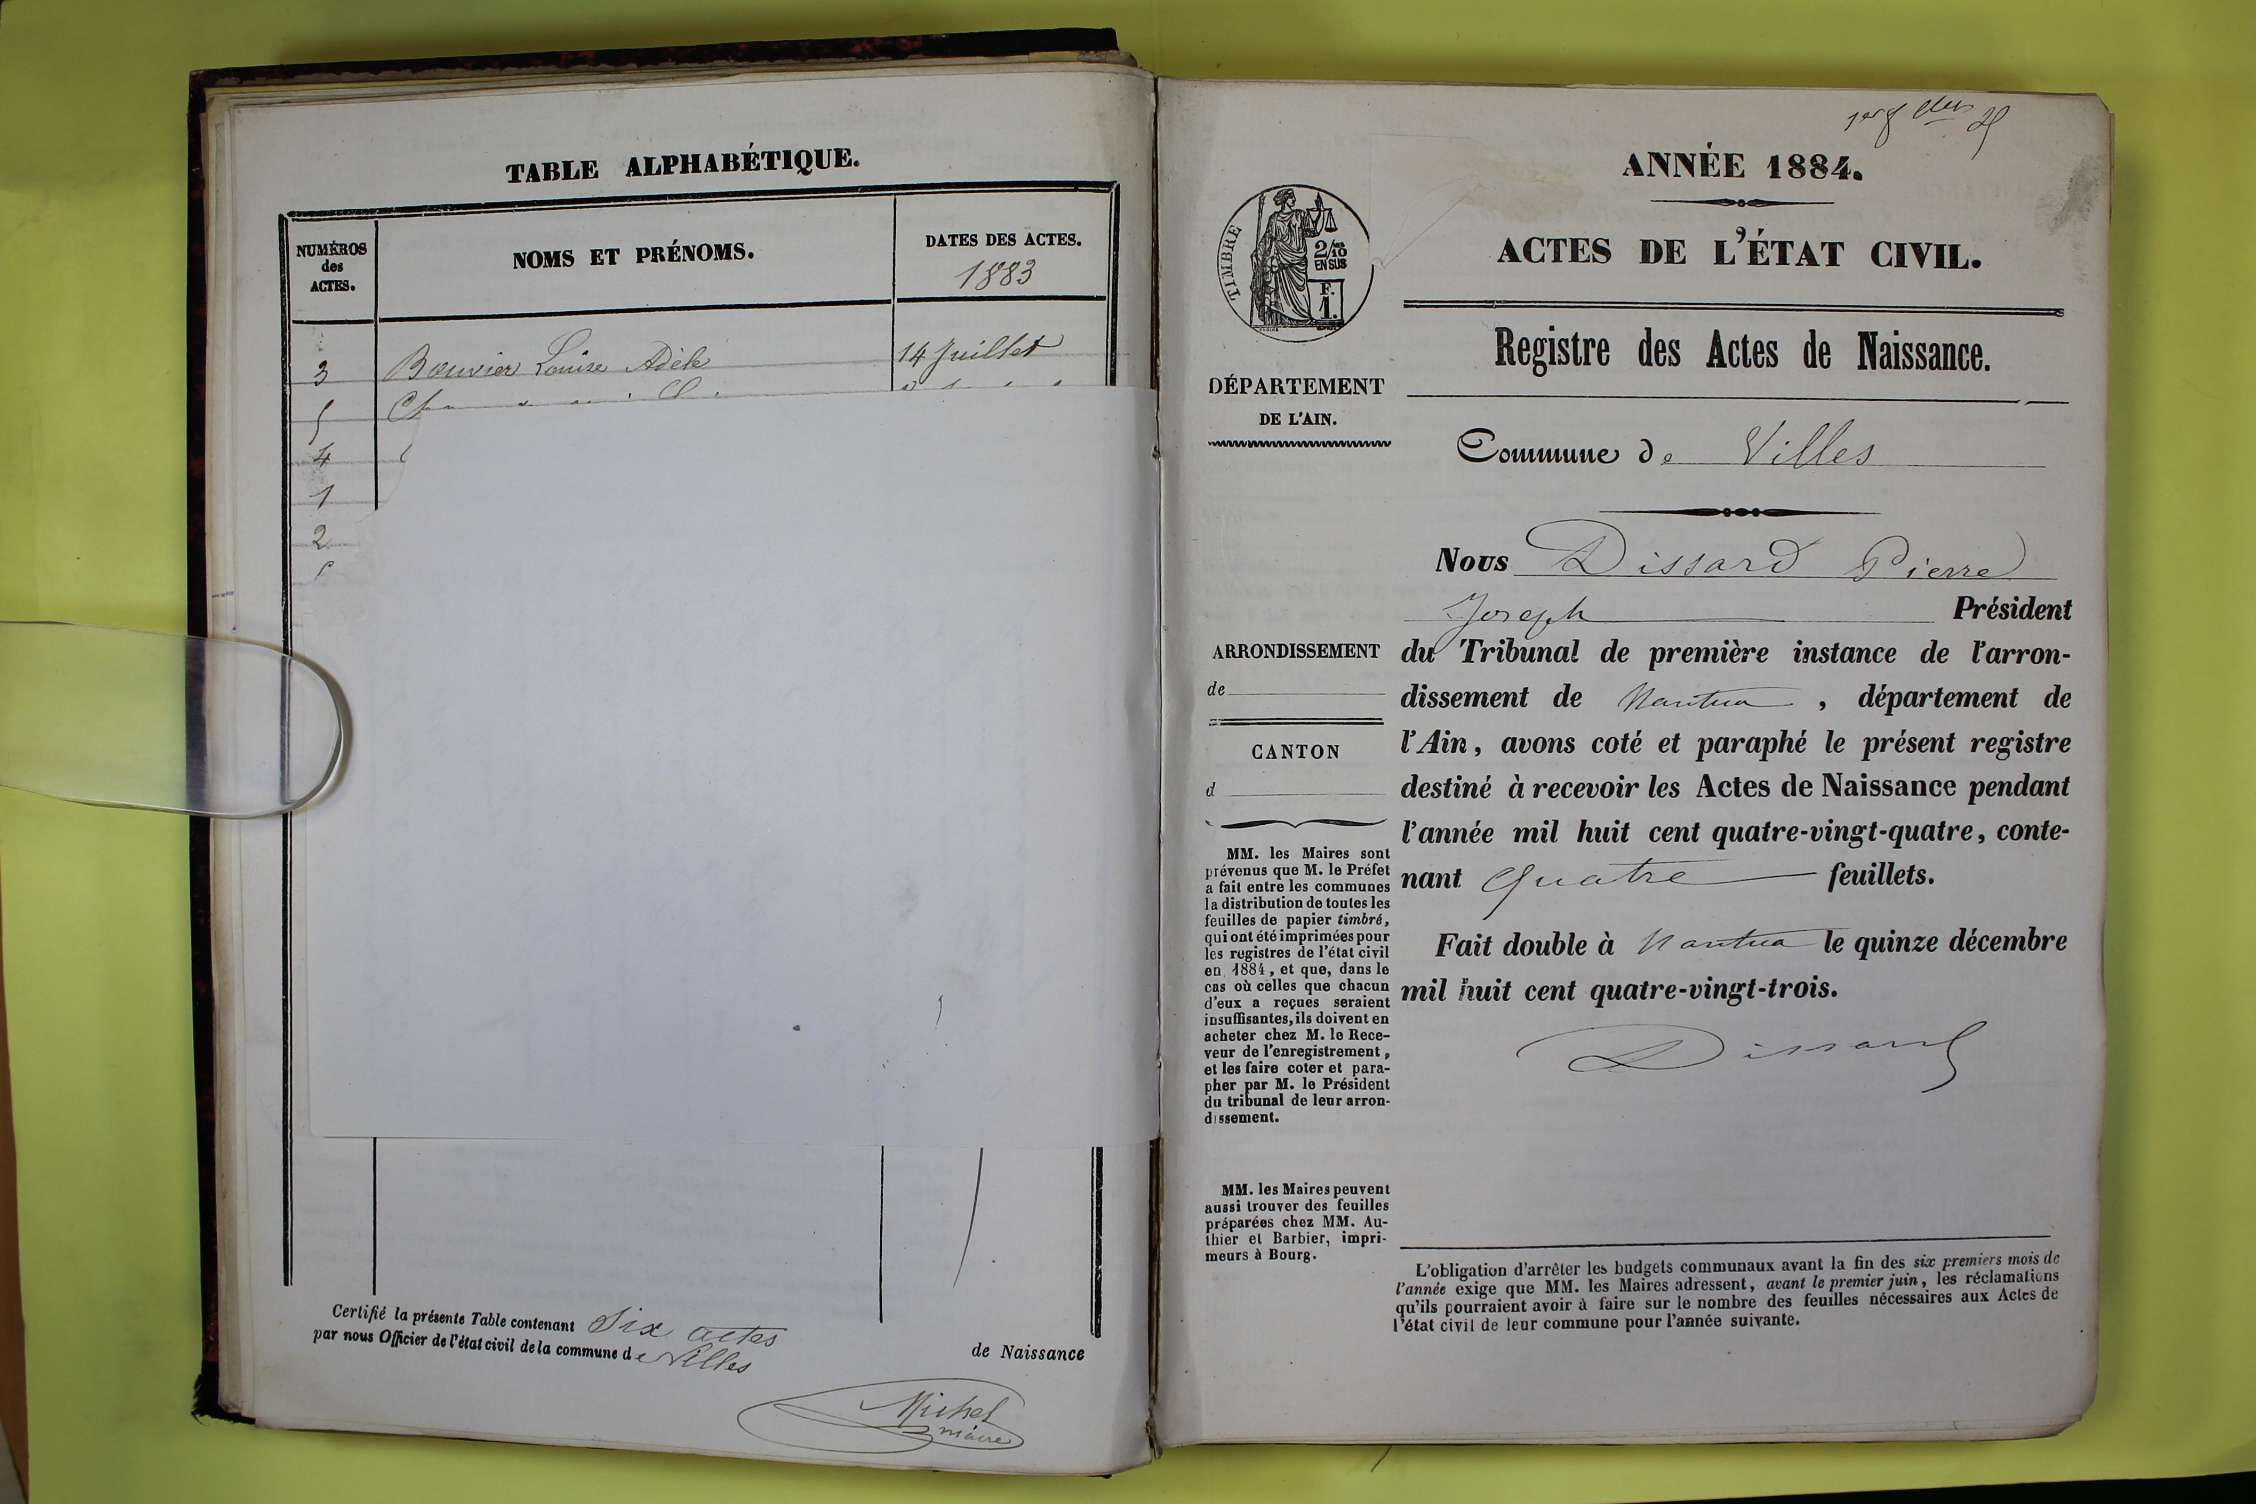 TABLE ALPHABÉTIQUE.
NUMÉROS
des
ACTES.
NOMS ET PRÉNOMS.
DATES DES ACTES.
1883
3 Bouvier Louise Adèle 14 Juillet
5
4
1
2
Certifié la présente Table contenant Six actes
par nous Officier de l'état civil de la commune de Villes
de Naissance
Michel
maire
ANNÉE 1884.
ACTES DE L'ÉTAT CIVIL.
TIMBRE
2/10
EN SUS
F.
1.
Registre des Actes de Naissance.
DÉPARTEMENT
DE L'AIN.
Commune de Villes
Nous Dissard Pierre
Joseph Président
du Tribunal de première instance de l'arron-
dissement de Nantua, département de
l'Ain, avons coté et paraphé le présent registre
destiné à recevoir les Actes de Naissance pendant
l'année mil huit cent quatre-vingt-quatre, conte-
nant quatre feuillets.
Fait double à Nantua le quinze décembre
mil huit cent quatre-vingt-trois.
Dissard
ARRONDISSEMENT
de
CANTON
d
MM. les Maires sont
prévenus que M. le Préfet
a fait entre les communes
la distribution de toutes les
feuilles de papier timbré,
qui ont été imprimées pour
les registres de l'état civil
en 1884, et que, dans le
cas où celles que chacun
d'eux a reçues seraient
insuffisantes, ils doivent en
acheter chez M. le Rece-
veur de l'enregistrement,
et les faire coter et para-
pher par M. le Président
du tribunal de leur arron-
dissement.
MM. les Maires peuvent
aussi trouver des feuilles
préparées chez MM. Au-
thier et Barbier, impri-
meurs à Bourg.
L'obligation d'arrêter les budgets communaux avant la fin des six premiers mois de
l'année exige que MM. les Maires adressent, avant le premier juin, les réclamations
qu'ils pourraient avoir à faire sur le nombre des feuilles nécessaires aux Actes de
l'état civil de leur commune pour l'année suivante.